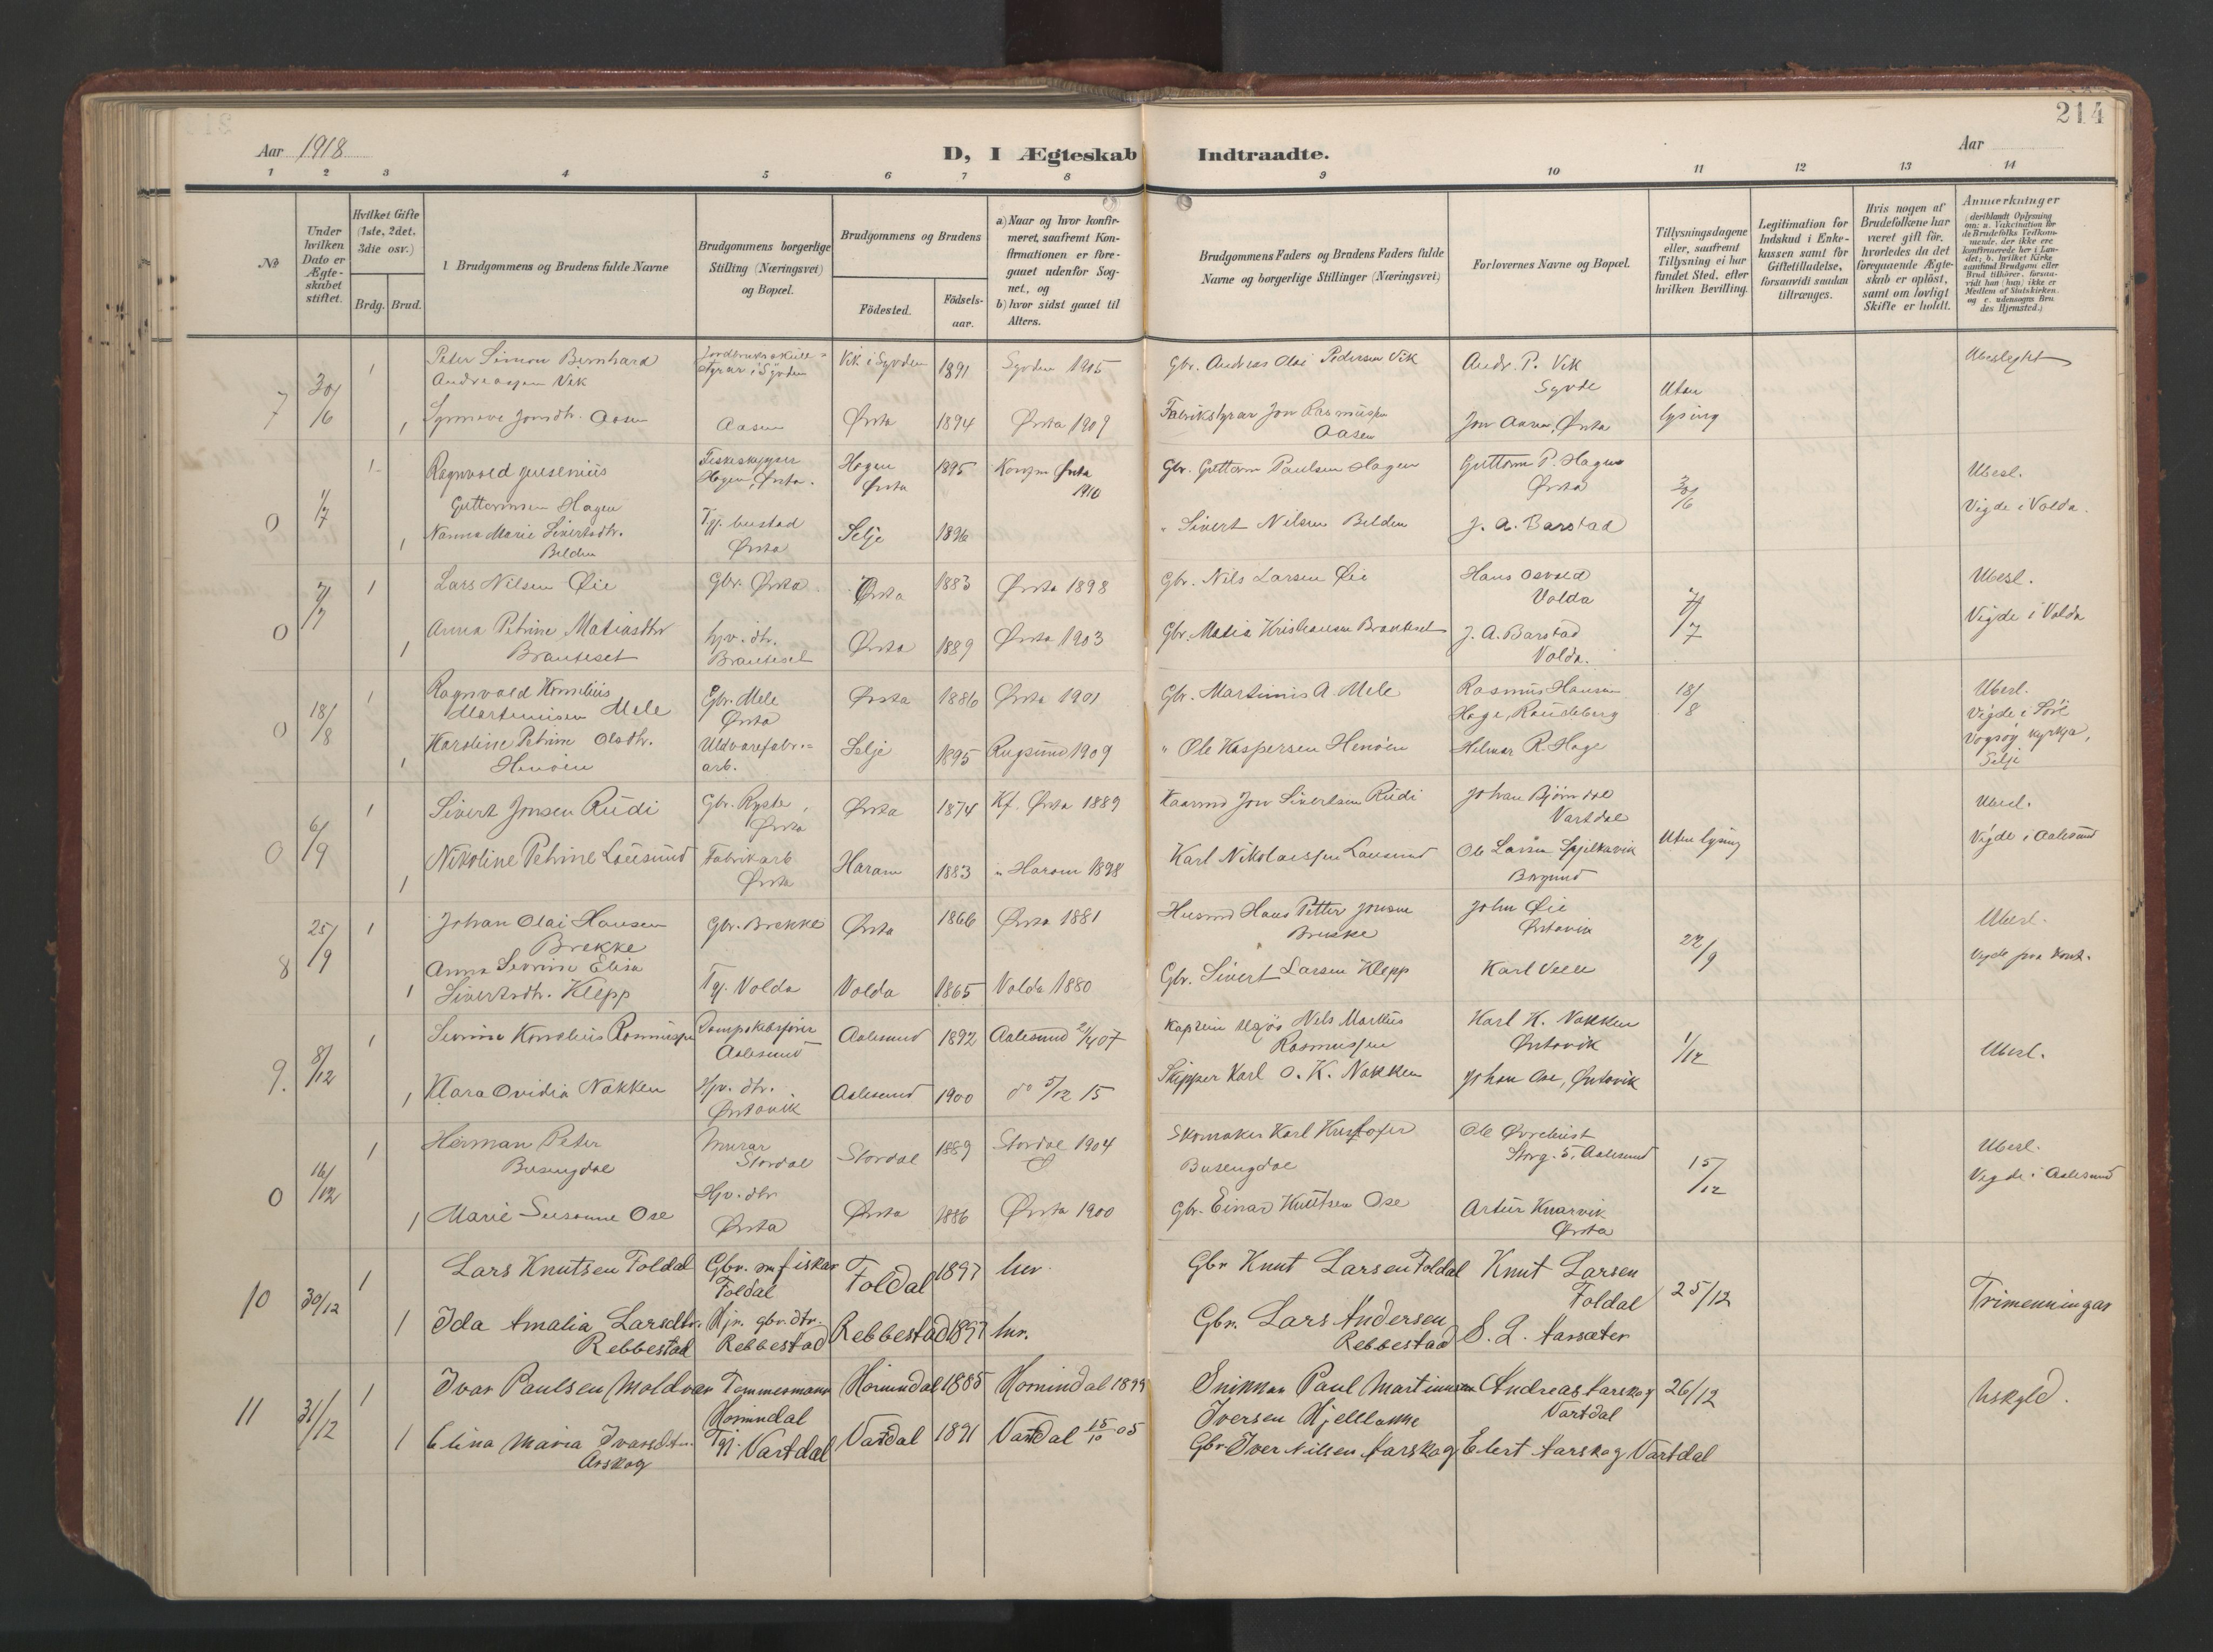 214
Aar 1918
D, I Ægteskab Indtraadte.
Aar
1 2 3 4 5 6 7 8 9 10 11 12 13 14
No
Under hvilken Dato er Ægteskabet stiftet.
Hvilket Gifte (1ste, 2det, 3die osv.)
Brdg. Brud.
1. Brudgommens og Brudens fulde Navne
Brudgommens borgerlige Stilling (Næringsvei) og Bopæl.
Brudgommens og Brudens
Födested.
Födselsaar.
a) Naar og hvor konfirmeret, saafremt Konfirmationen er foregaaet udenfor Sognet, og
b) hvor sidst gaaet til Alters.
Brudgommens Faders og Brudens Faders fulde Navne og borgerlige Stillinger (Næringsvei)
Forlovernes Navne og Bopæl.
Tillysningsdagene eller, saafremt Tillysning ei har fundet Sted, efter hvilken Bevilling.
Legitimation for Indskud i Enkekassen samt for Giftetilladelse, forsaavidt saadan tiltrænges.
Hvis nogen af Brudefolkene har været gift för, hvorledes da det foregaaende Ægteskab er oplöst, samt om lovligt Skifte er holdt.
Anmerkninger
7 30/6 1 Peter Simon Bernhard Andreassen Vik Vik i Syvden 1891 Syvden 1905 Gbr. Andreas Olai Pedersen Vik Andr. P. Vik Syvde Uten lysing Ubeslegtet
1 Synnøve Jonsdtr. Aasen Aasen Ørsta 1894 Ørsta 1909 Fabrikstyrar Jon Rasmussen Aasen Jon Aasen, Ørsta
0 1/7 1 Ragnvald Juelenius Guttormsen Hagen Fiskeskypper Hagen, Ørsta. Hagen Ørsta 1895 Ørsta 1910 Gbr. Guttorm Paulsen Hagen Guttorm P. Hagen Ørsta 30/6 Ubesl. Vigde i Volda.
1 Nanna Marie Sivertsdtr. Belden Tgj. bustad Ørsta Selje 1896 " Sivert Nilsen Belden J. A. Barstad
0 7/7 1 Lars Nilsen Øie Gbr. Ørsta Ørsta 1883 Ørsta 1898 Gbr. Nils Larsen Øie Hans Osvold Volda 7/7 Ubesl. Vigde i Volda
1 Anna Petrine Matiasdtr Brauteset hjv. dtr. Brauteset Ørsta 1889 Ørsta 1903 Gbr. Matia Kristiansen Brauteset J. A. Barstad Volda.
0 18/8 1 Ragnvald Kornelius Martinusen Mele Gbr. Mele Ørsta Ørsta 1886 Ørsta 1901 Gbr. Martinus A. Mele Rasmus Hansen Hage, Raudeberg 18/8 Ubesl. Vigde i Søre Vogsøy kyrkja, Selje
1 Karoline Petrine Olsdtr. Henøen Uldvarefabr.= arb. Selje 1895 Rugsund 1909 " Ole Kaspersen Henøen Helmer R. Hage
0 6/9 1 Sivert Jonsen Rudi Gbr. Ryste, Ørsta Ørsta 1874 Kf. Ørsta 1889 Kaarmd Jon Sivertsen Rudi Johan Bjørndal Vartdal Uten lysing Ubesl. Vigde i Aalesund
1 Nikoline Petrine Lausund Fabrikarb Ørsta Haram 1883 " Haram 1898 Karl Nikolaissen Lausund Ole Larsen Spjelkavik Borgund
8 25/9 1 Johan Olai Hansen Brekke Gbr. Brekke Ørsta 1866 Ørsta 1881 Husmd Hans Petter Jonsen Brekke John Øie Ørstavik 22/9 Ubesl. Vigde paa kont.
1 Anna Severine Elisa Sivertsdtr. Klepp Tgj. Volda Volda 1865 Volda 1880 Gbr. Sivert Larsen Klepp Karl Velle
9. 8/12 1 Severin Kornelius Rasmussen Aalesund Aalesund 1892 Aalesund 2/4 07 Nils Markus Rasmussen Karl K. Nakken Ørstavik 1/12 Ubesl.
1 Klara Ovidia Nakken Hjv. dtr. Ørstavik Aalesund 1900 do 5/12 15 Skipper Karl O. K. Nakken Johan Ose, Ørstavik
0 16/12 1 Herman Peter Busengdal Murar Stordal Stordal 1889 Stordal 1904 Skomaker Karl Kristofer Busengdal Ole Øvrelid Storg. 5, Aalesund 15/12 Ubesl. Vigde i Aalesund
1 Marie Susanne Ose Hjv. dtr Ørsta Ørsta 1886 Ørsta 1900 Gbr. Einar Knutsen Ose Artur Knarvik Ørsta
10 30/12 1 Lars Knutsen Foldal Gbr. sm fiskar Foldal Foldal 1897 her. Gbr Knut Larsen Foldal Knut Larsen Foldal 25/12 Trimenningar
1 Ida Amalia Larsdtr. Rebbestad Hjv. gbr. dtr. Rebbestad Rebbestad 1897 her. Gbr. Lars Andersen Rebbestad S. L. Aarsæter
11 31/12 1 Ivar Paulsen Moldvær Tømmermann Hornindal Hornindal 1885 Hornindal 1899 Snikkar Paul Martinusen Iversen Hjellbakke Andreas Aarskog Vartdal 26/12 Uskyld.
1 Elina Maria Ivarsdtr. Årskog Tgj. Vartdal Vartdal 1891 Vartdal 15/10 05 Gbr Iver Nilsen Aarskog Elert Aarskog Vartdal